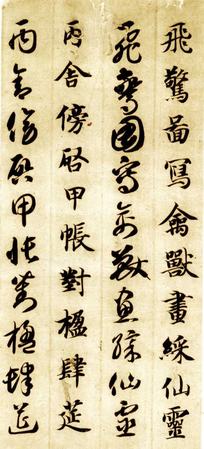 飛驚啚寫禽獸畫綵仙靈
飛驚圖寫禽獸畫綵仙靈
丙舍傍啓甲帳對楹肆莚
丙舍傍啓甲帳對楹肆莚